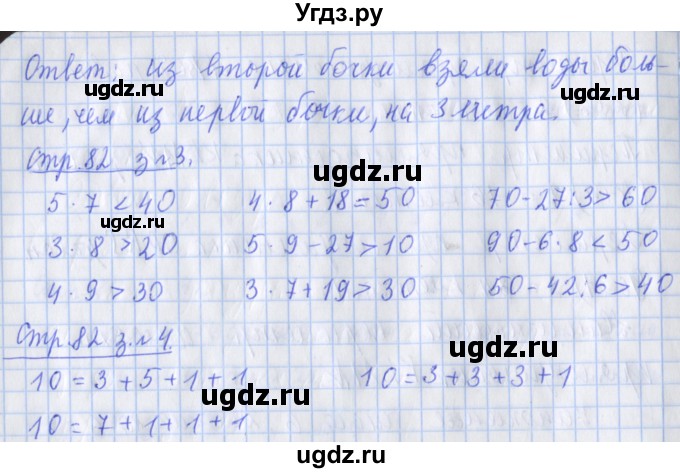 Угдз.ру
Ответ: из второй бочки взяли воды боль-
ше, чем из первой бочки, на 3 литра.
ugdz.ru
Стр. 82 з. № 3.
ugdz.ru
5 · 7 < 40 4 · 8 + 18 = 50 70 - 27 : 3 > 60
ugdz.ru
3 · 8 > 20 5 · 9 - 27 > 10 90 - 6 · 8 < 50
4 · 9 > 30 3 · 7 + 19 > 30 50 - 42 : 6 > 40
Стр. 82 з. № 4.
ugdz.ru
10 = 3 + 5 + 1 + 1 10 = 3 + 3 + 3 + 1
ugdz.ru
10 = 7 + 1 + 1 + 1
ugdz.ru
ugdz.ru